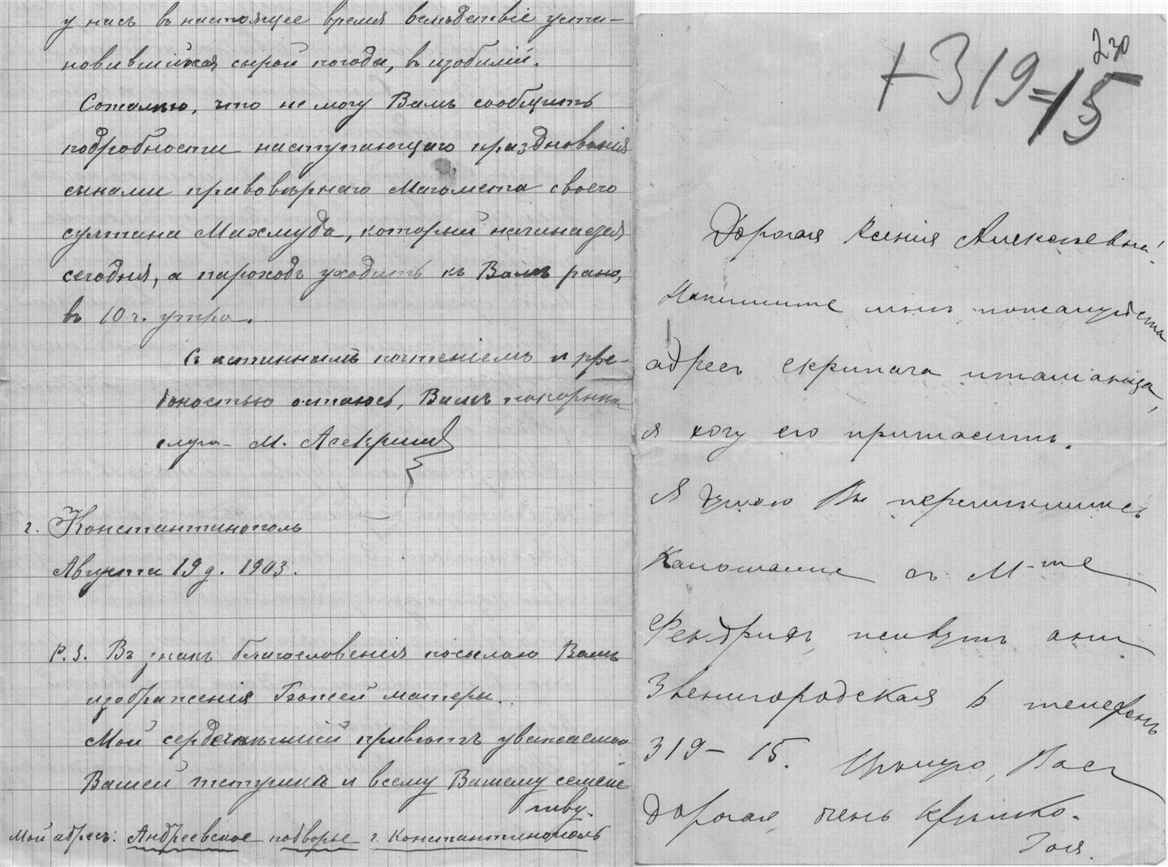 у насъ въ настоящее время вслѣдствіе уста-
новившейся сырой погоды, въ изобиліи.
Сожалѣю, что не могу Вамъ сообщить
подробности наступающаго празднованія
сынами правовѣрнаго Магомета своего
султана Махмуда, который начинается
сегодня, а пароходъ уходитъ къ Вамъ рано,
въ 10 ч. утра.
Съ истиннымъ почтеніемъ и пре-
данностью остаюсь, Вашъ покорный
слуга М.
г. Константинополь
Августа 19 д. 1903.
P.S. Въ знакъ благословенія посылаю Вамъ
изображенія Божьей матери.
Мой сердечнѣйшій привѣтъ уважаемой
Вашей тетушкѣ и всему Вашему семей-
ству.
Мой адресъ: Андреевское подворье г. Константинополь
230
+ 319=15
Дорогая Ксенія Алексѣевна!
Напишите мнѣ, пожалуйста
адресъ скрипача итальянца,
я хочу его пригласить.
Я думаю Вы
съ M-me
живутъ они
Звенигородская 6 телефонъ
319-15. Цѣлую Васъ
дорогая, очень крѣпко.